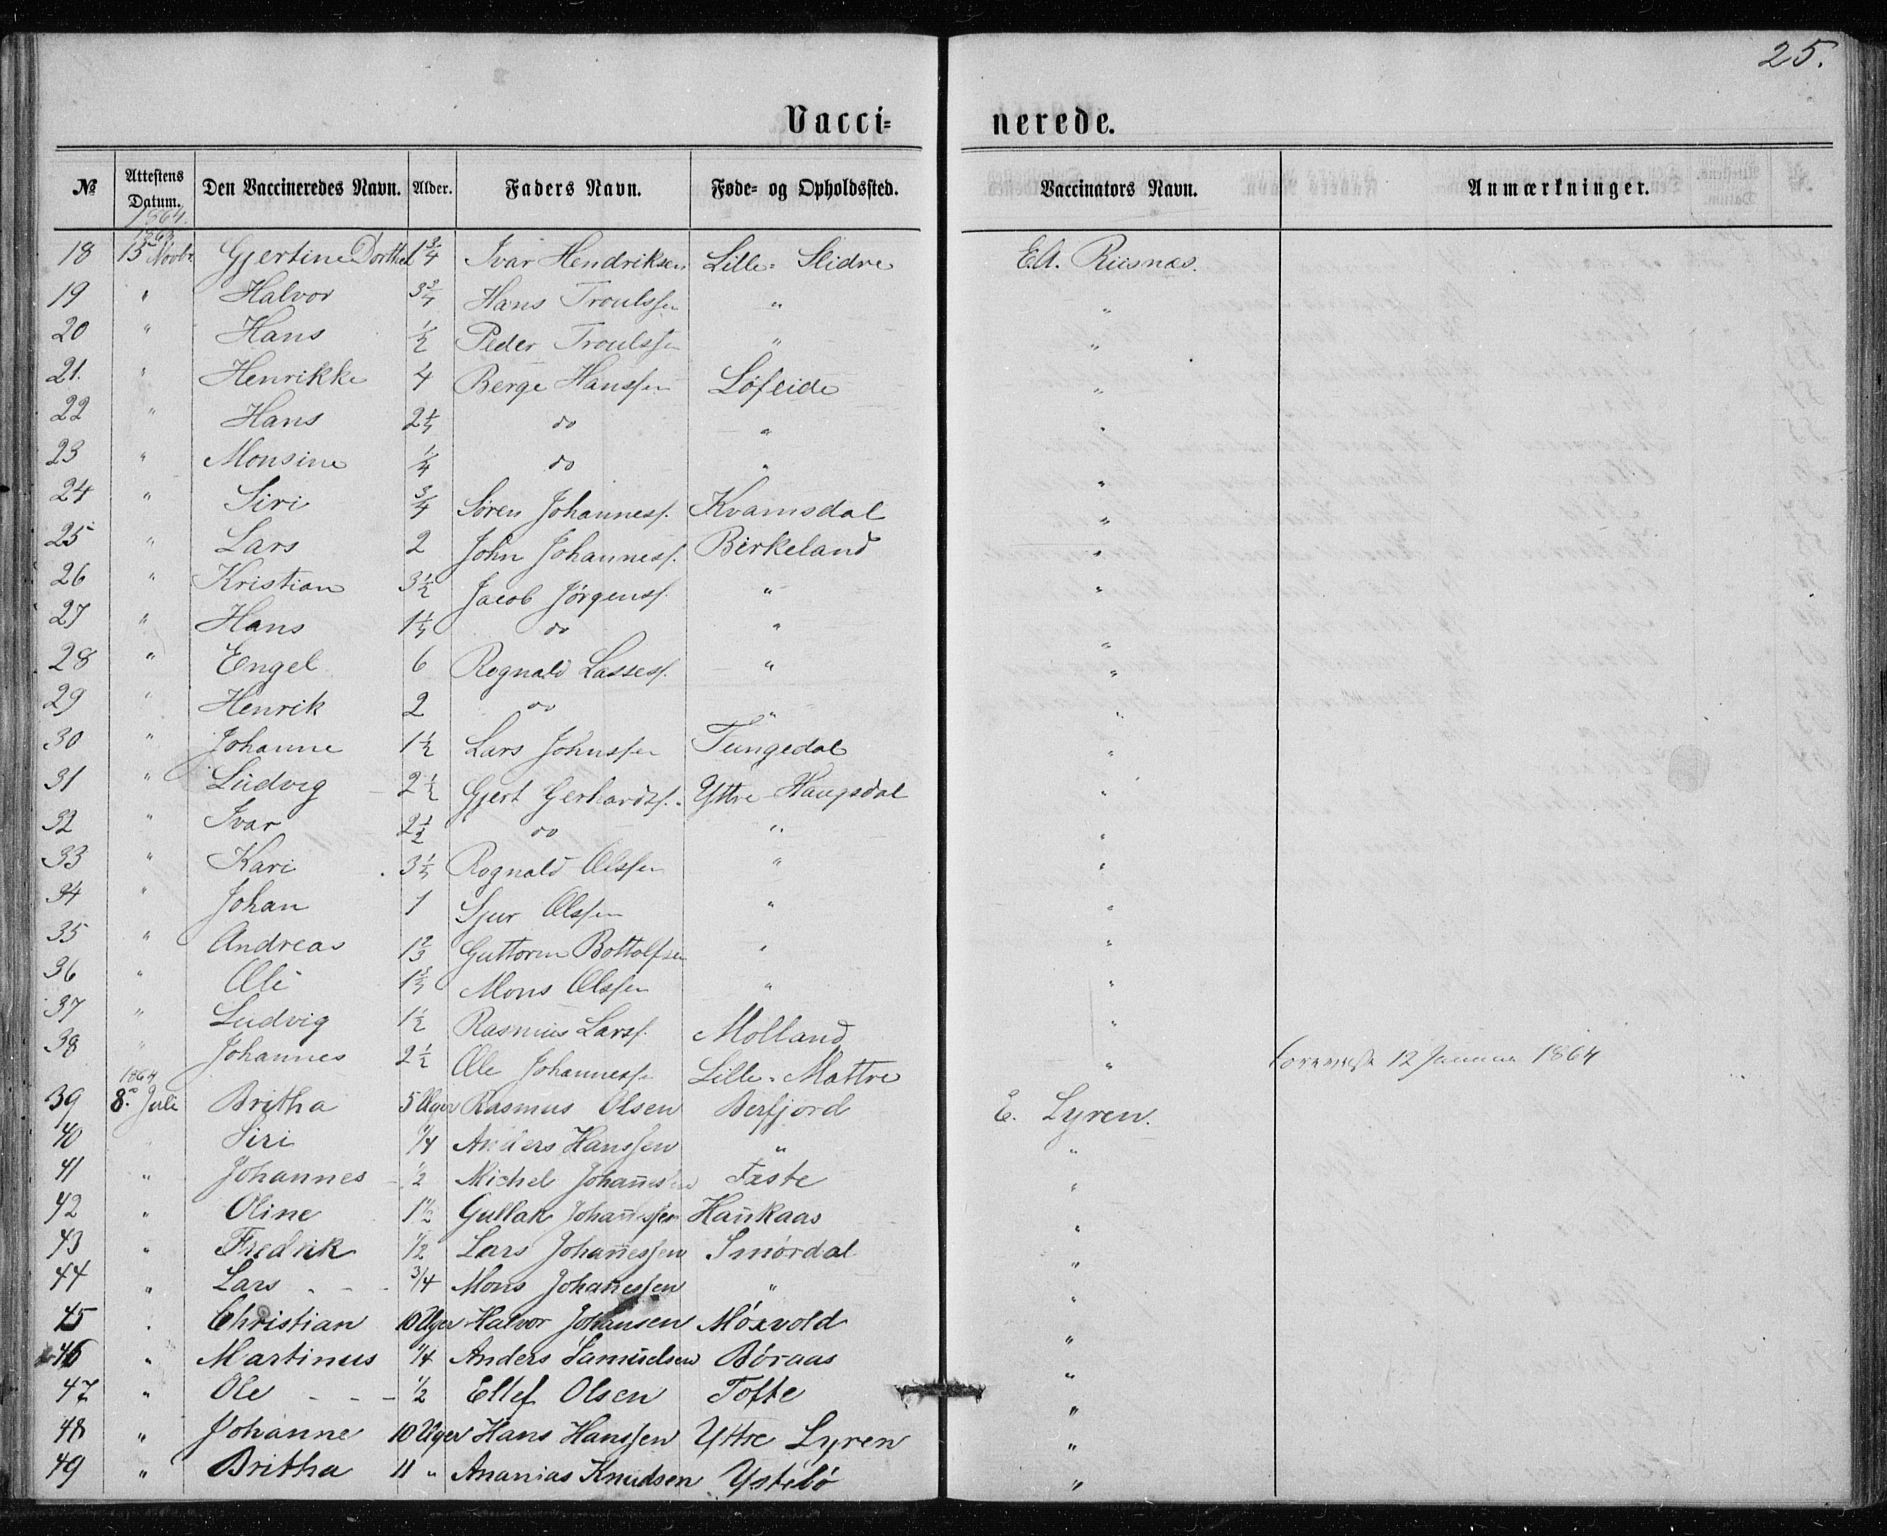 25.
Vacci= nerede.
№ Attestens Datum. Den Vaccineredes Navn. Alder. Faders Navn. Føde- og Opholdssted. Vaccinators Navn. Anmærkninger.
1864.
1863
18 15 Novbr Gjertine Dorthea 1 3/4 Ivar Hendriksen Lille Slidre E.A. Riisnæs.
19 " Halvor 3 Hans Troulssen " "
20 " Hans 1/2 Peder Troulssen " "
21. " Henrikke 4 Berge Hanssen Løfeide "
22 " Hans 2 do " "
23 " Monsine 1/4 do " "
24 " Siri 3/4 Søren Johanness. Kvamsdal "
25 " Lars 2 John Johanness. Birkeland "
26 " Kristian 3 1/2 Jacob Jörgenss. " "
27 " Hans 1 do " "
28 " Engel 6 Rognald Lassess. " "
29 " Henrik 2 do " "
30 " Johanne 1 1/2 Lars Johnssen Tungedal "
31 " Ludvig 2 1/2 Gjert Gerhardss. Yttre Haugsdal "
32 " Ivar 2 1/2 do " "
33 " Kari 3 Rognald Olssen " "
34 " Johan 1 Sjur Olssen " "
35 " Andreas 1 Guttorm Bottolfsen " "
36 " Ole 1 Mons Olssen " "
37 " Ludvig 1 1/2 Rasmus Larss. Molland "
38 " Johannes 2 1/2 Ole Johannessen Lille-Mattre " 12 Januar 1864
1864
39 8de Juli Britha 5 Uger Rasmus Olsen Berfjord E. Lyren.
40 " Siri 1/4 Anders Hanssen " "
41 " Johannes 1/2 Michel Johanesen Faste "
42 " Oline 1 1/2 Gullak Johanessen Haukaas "
43 " Fredrik 1/2 Lars Johanessen Smørdal "
44 " Lars 3/4 Mons Johanessen " "
45 " Christian 10 Uger Halvor Johansen Möxvold "
46 " Martinus 1/4 Anders Samuelsen Böraas "
47 " Ole 1/2 Ellef Olsen Tofte "
48 " Johanne 10 Uger Hans Hanssen Yttre Lyren "
49 " Britha 11 " Ananias Knudsen Ystebö "